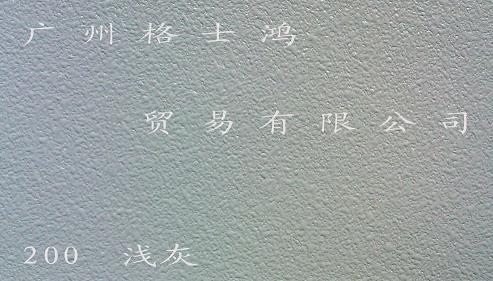 广州格士鸿
贸易有限公司
200 浅灰